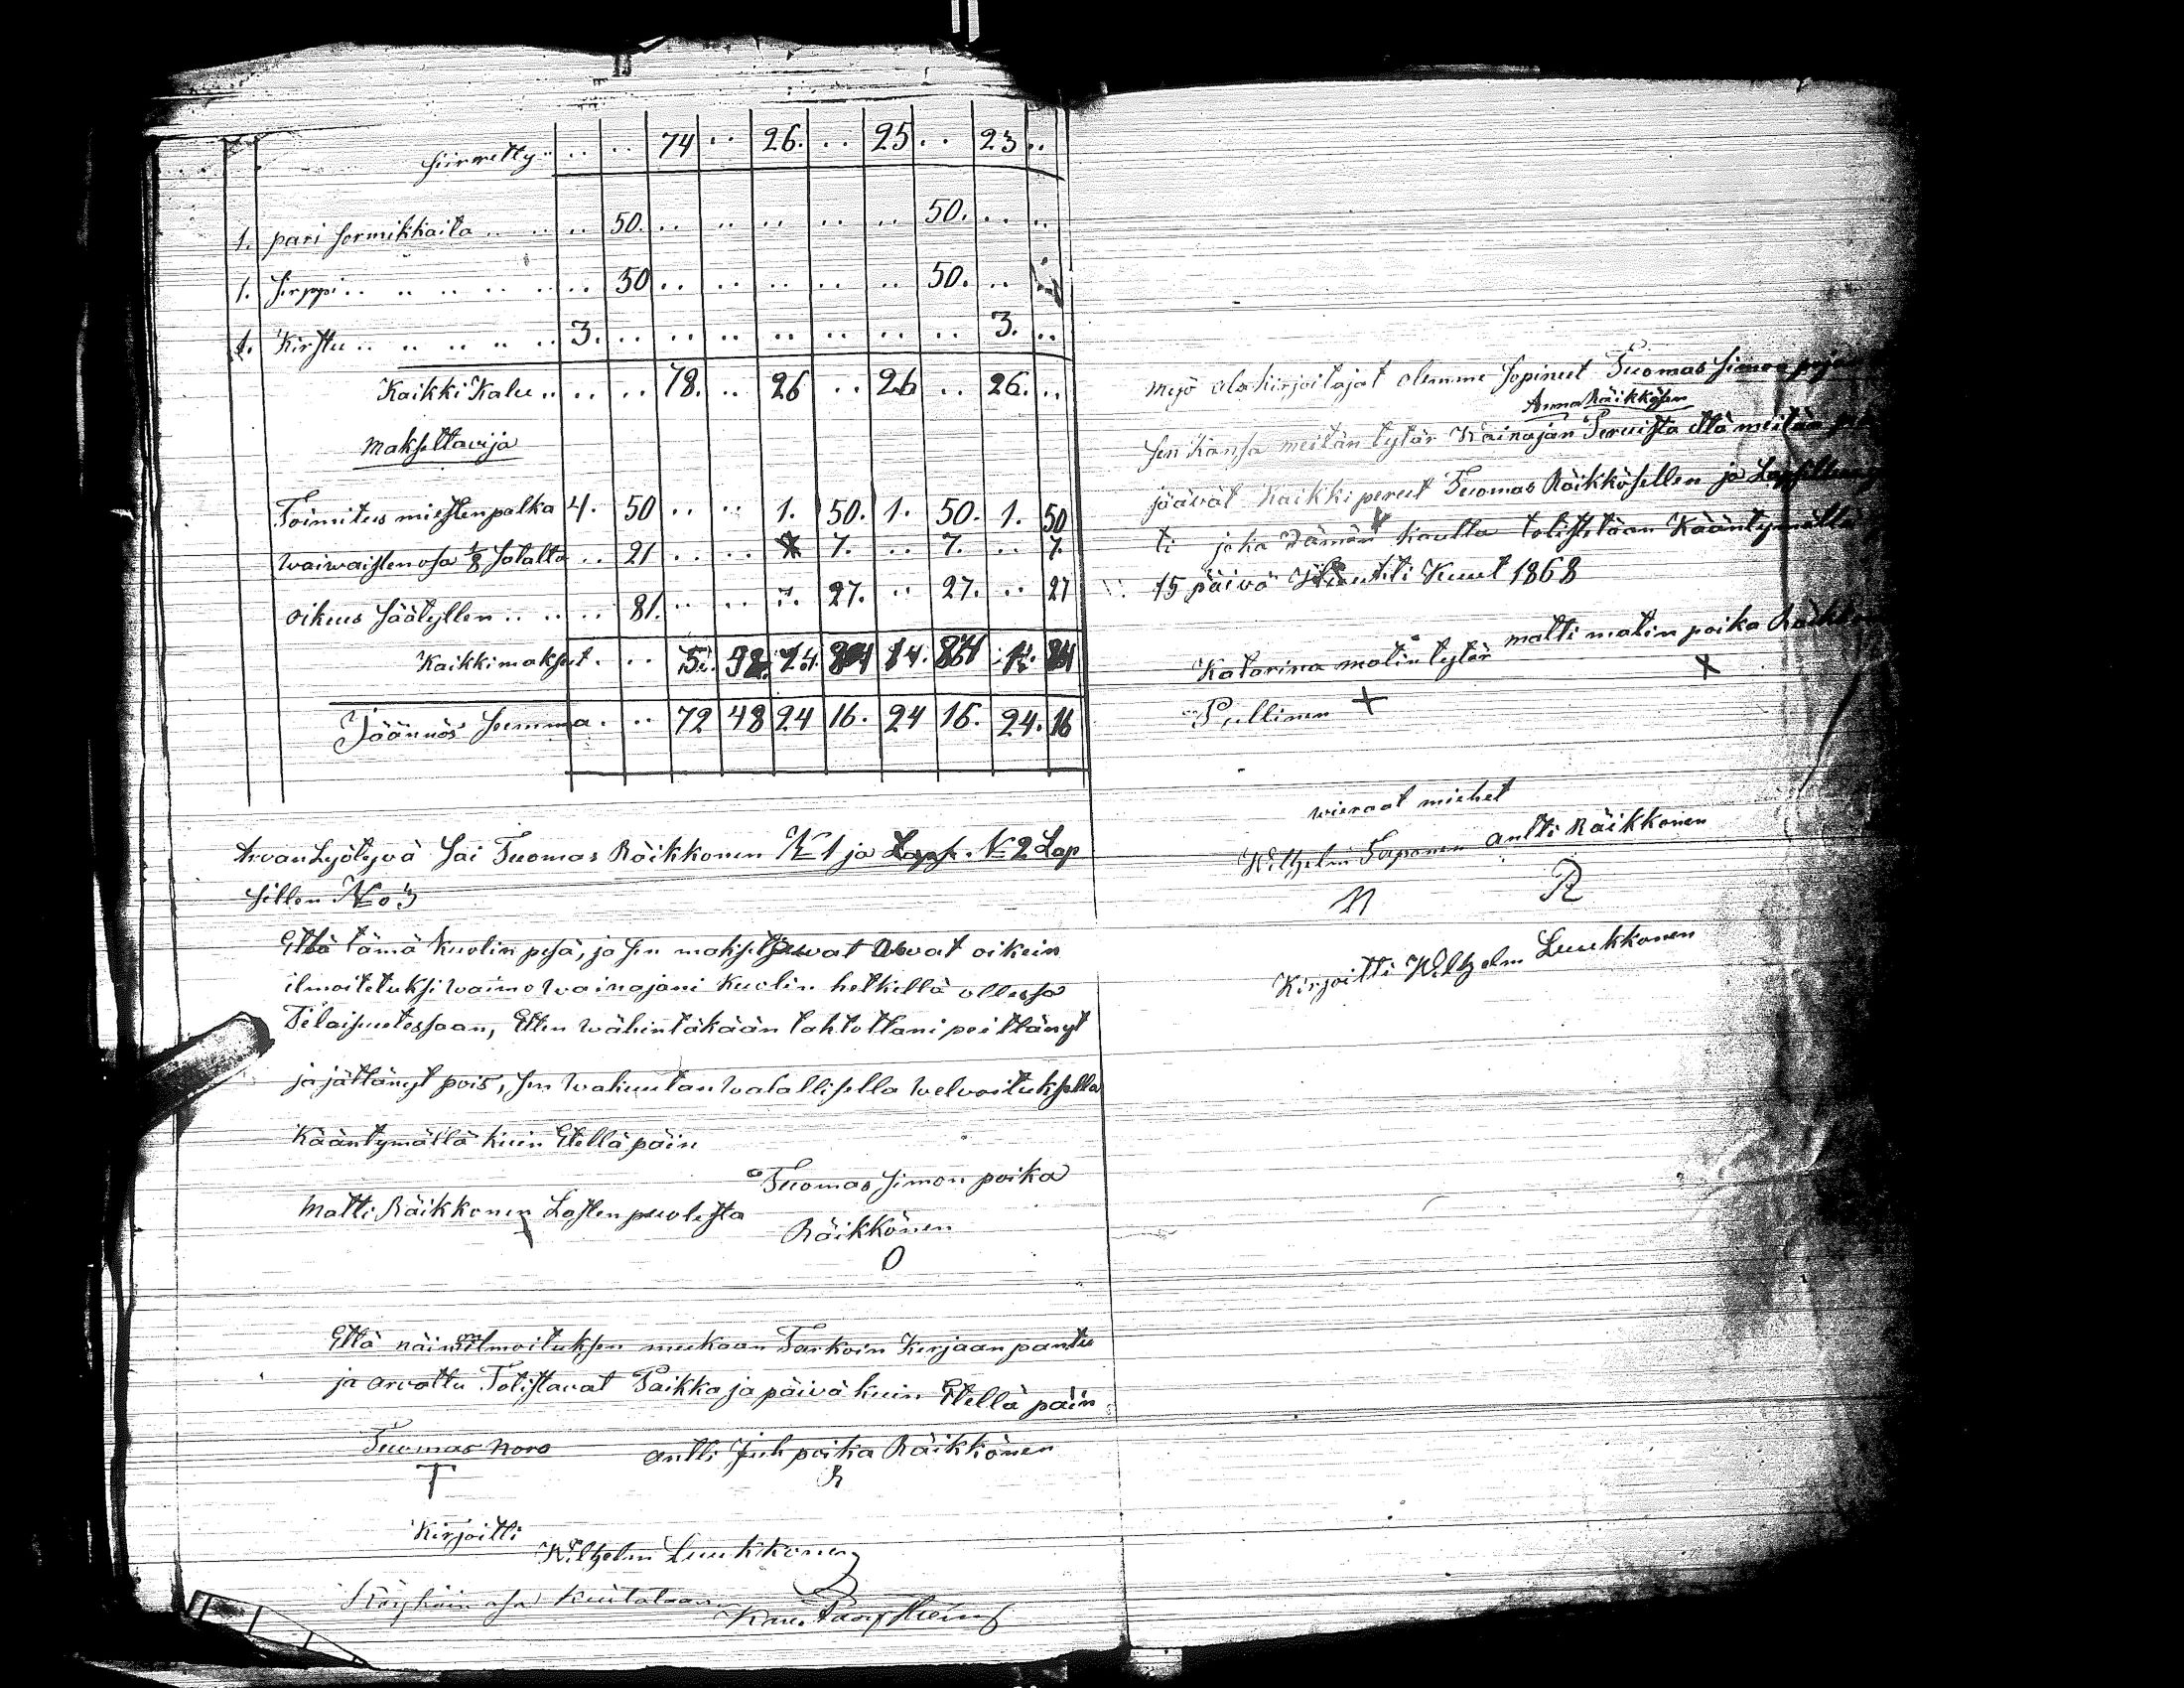 siirretty .. .. .. 74 .. 26. .. 25 .. 23 ..
1. pari sormikkaita .. .. .. 50. .. .. .. .. .. 50. .. ..
1. sirppi .. .. .. .. .. .. 50 .. .. .. .. .. 50. ..
1. Kirstu .. .. .. .. .. 3. .. .. .. .. .. .. .. 3. ..
Kaikki Kalu .. .. .. 78. .. 26 .. 26 .. 26. ..
maksettavija
Toimitus miesten palka 4. 50 .. .. 1. 50. 1. 50. 1. 50
waiwaisten osa 1/8 satalta .. 21 .. .. 7. .. 7. .. 7.
oikeus säätyllen .. .. .. 81. .. .. .. 27. .. 27. .. 27
Kaikki maksut . .. 5.
Jäännös summa . .. 72 48 24 16. 24 16. 24. 16
Arvan Lyötyvä sai Tuomas Räikkonen No 1 ja Lapse. No 2 Lap
sillen No 3
Että tämä kuolin pesä, ja sen maksettavat ovat oikein
ilmoitetuksi waimo wainajani kuolin hetkellä ollessa
Tilaisuutessaan, Etten wähintäkään tahtottani peittänyt
ja jättänyt pois, sen wakuutan walallisella welvoituksella
Kääntymällä kuin Etellä päin
Tuomas Simon poika
Matti Räikkonen Lasten puolesta
Räikkönen
O
Että näin on ilmoituksen mukaan Tarkoin Kirjaan pantu
ja arvattu Totistavat Paikka ja päivä kuin Etellä päin
Tuomas Noro antti Juh poika Räikkönen
T R
Kirjoitti
Wilhelm Luukkonen
osa kuitataan
myö ala kirjoitajat olemme sopineet Tuomas Simon
Anna Räikkösen
sen kansa meitän tytär Wainajan Peruista että meitän
jäävät kaikki perut Tuomas Räikkösellen ja
ti joka tämän kautta totistetaan Kääntymällä
15 päivä Kuut 1868
matti matin poika
Katarina matin tytär X
Pullinen X
wieraat miehet
Wilhelm antti Räikkonen
R
Kirjoitti Wilhelm Luukkonen